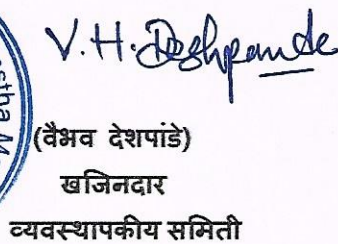 V.H. Deshpande
(वैभव देशपांडे)
खजिनदार
व्यवस्थापकीय समिती